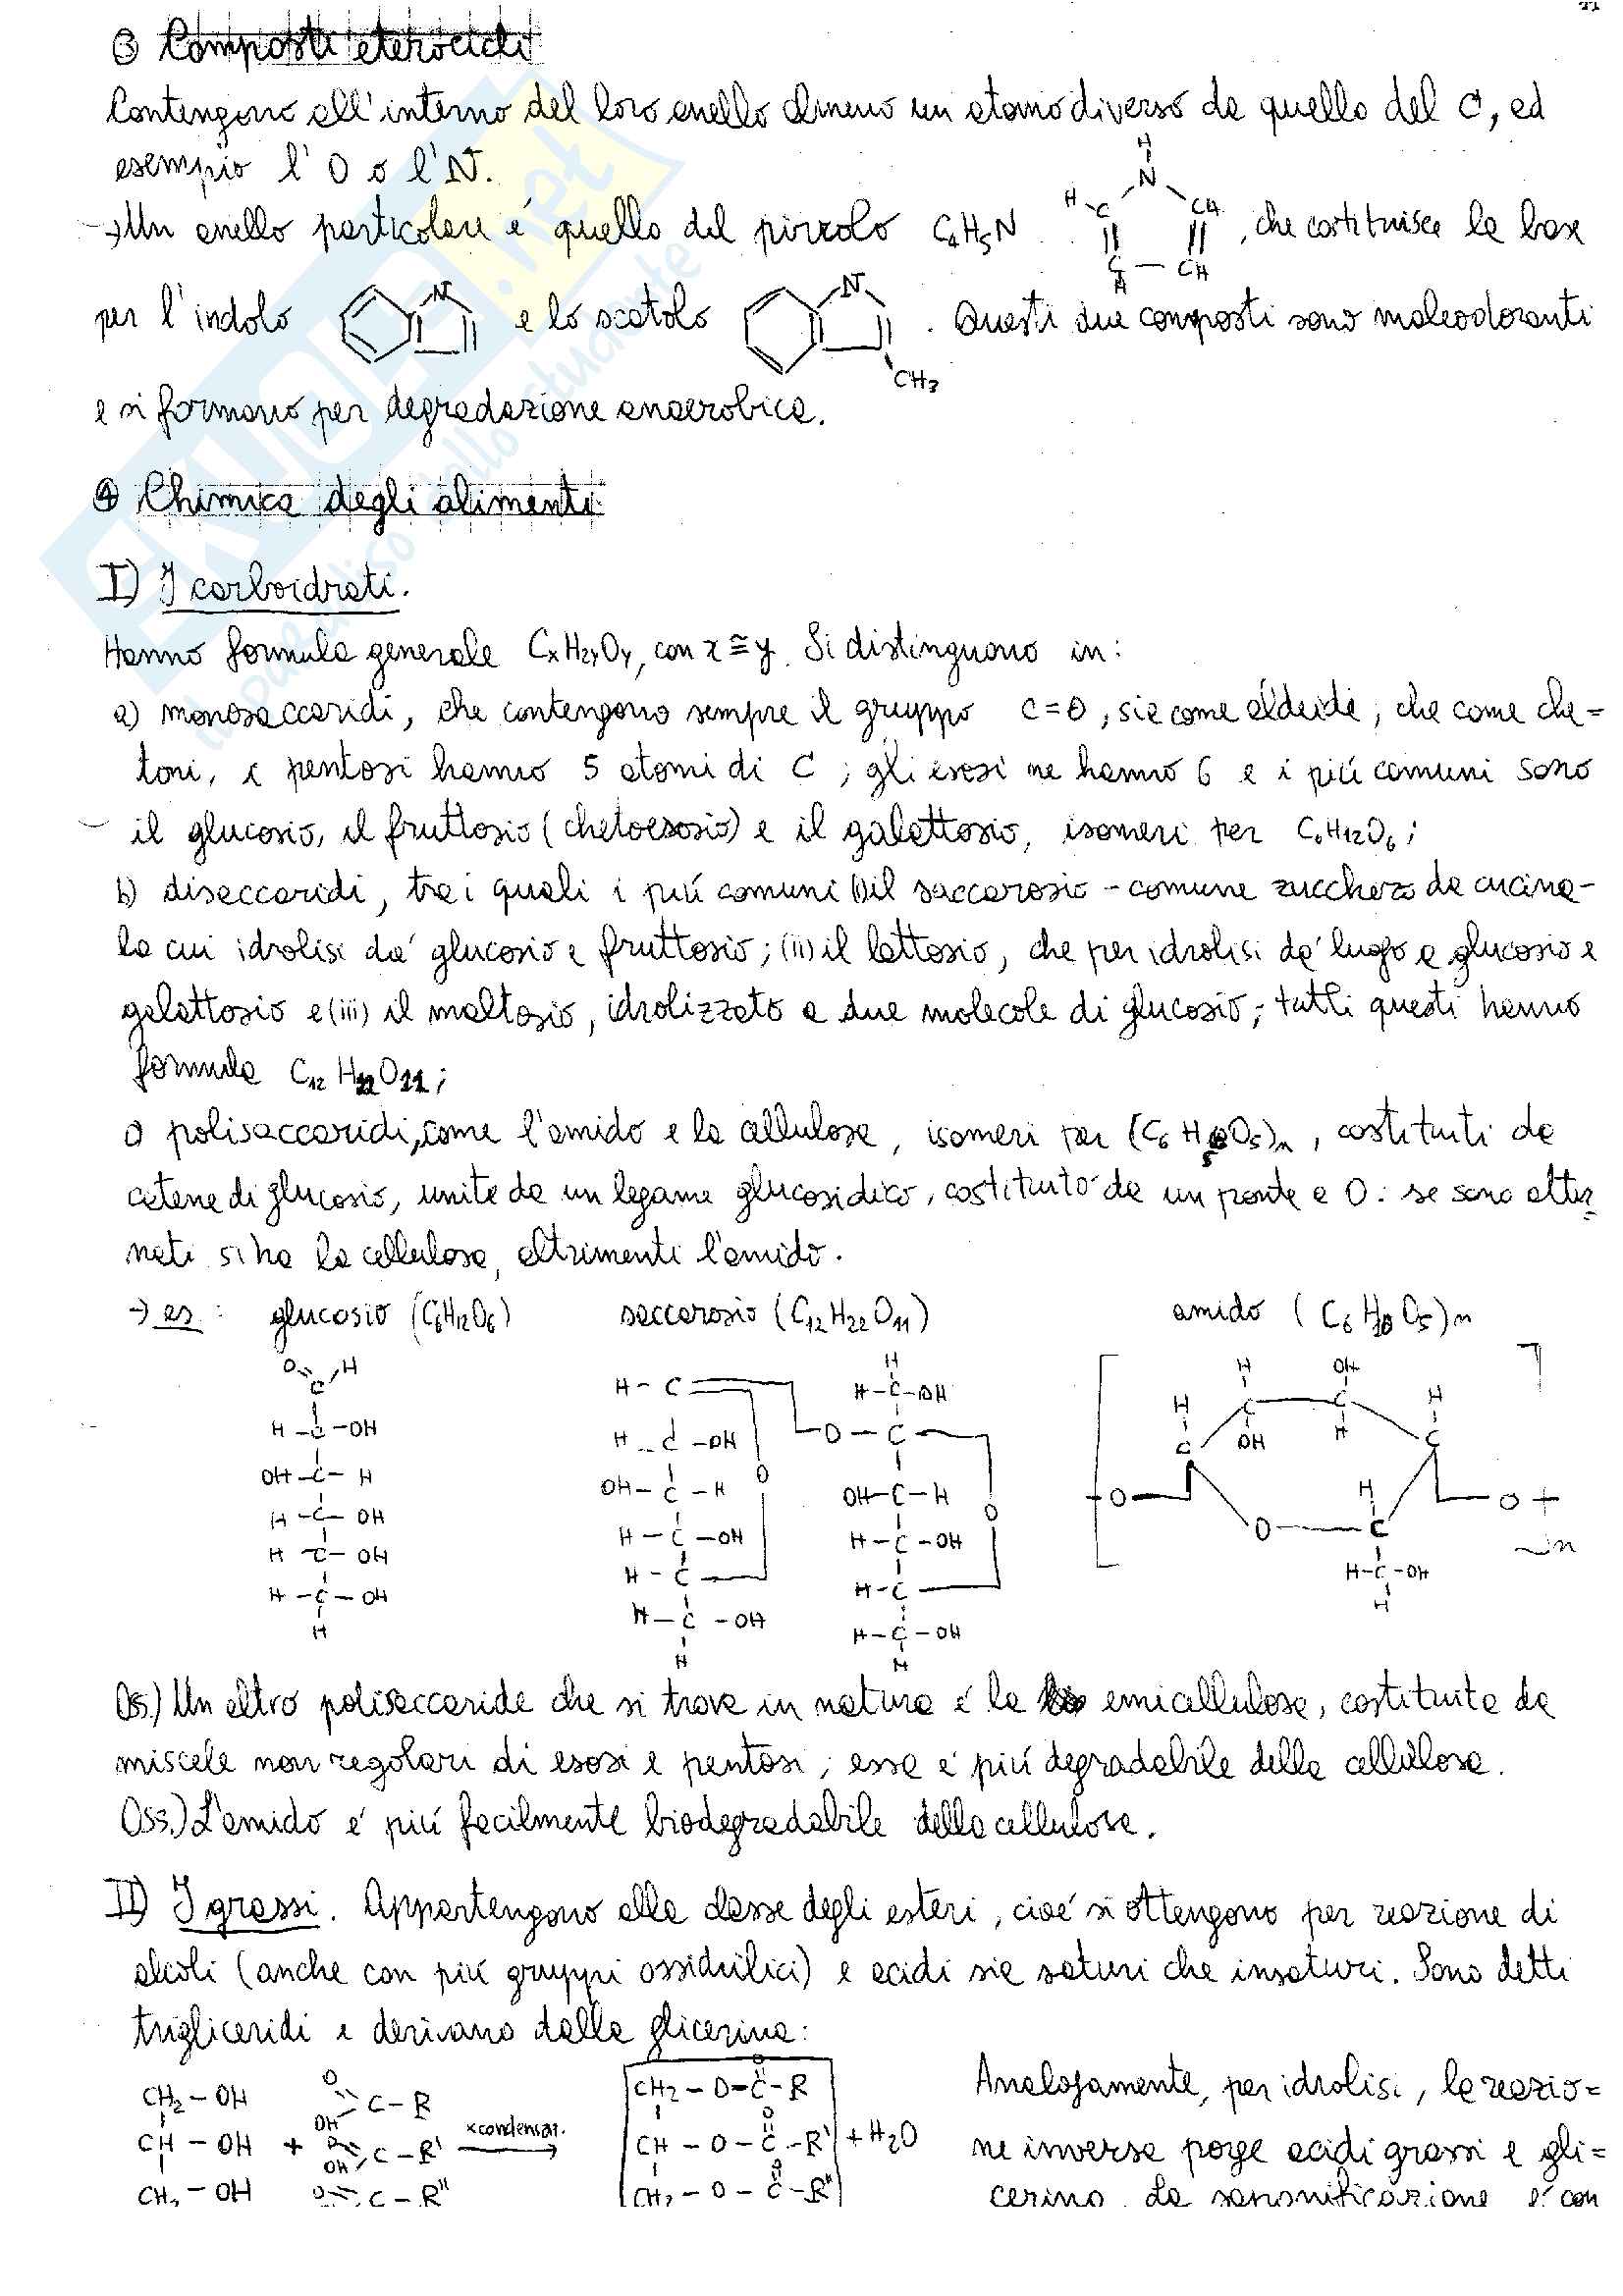 ③ Composti eterocicli
Contengono all'interno del loro anello almeno un atomo diverso da quello del C, ad
esempio l'O o l'N.
→ Un anello particolare é quello del pirrolo C4H5N , che costituisce la base
H
N
H C CH
C — CH
H
per l'indolo N e lo scatolo N CH3 . Questi due composti sono maleodoranti
e si formano per degradazione anaerobica.
④ Chimica degli alimenti
I) I carboidrati.
Hanno formula generale CxH2yOy, con x ≅ y. Si distinguono in:
a) monosaccaridi, che contengono sempre il gruppo C=O, sia come aldeide, che come che=
toni, i pentosi hanno 5 atomi di C; gli esosi ne hanno 6 e i piú comuni sono
il glucosio, il fruttosio (chetoesosio) e il galattosio, isomeri per C6H12O6;
b) disaccaridi, tra i quali i piú comuni (i) il saccarosio - comune zucchero da cucina -
la cui idrolisi da' glucosio e fruttosio; (ii) il lattosio, che per idrolisi da' luogo a glucosio e
galattosio e (iii) il maltosio, idrolizzato a due molecole di glucosio; tutti questi hanno
formula C12H22O11;
c) polisaccaridi, come l'amido e la cellulosa, isomeri per (C6 H O5)n, costituiti da
catene di glucosio, unite da un legame glucosidico, costituito da un ponte a O: se sono alter
nati si ha la cellulosa, altrimenti l'amido.
→ es: glucosio (C6H12O6) saccarosio (C12H22O11) amido (C6H10O5)n
O H
C
H - C - OH
OH - C - H
H - C - OH
H - C - OH
H - C - OH
H
H - C
H - C - OH
OH - C - H
H - C - OH
H - C
H - C - OH
H
O
H
H - C - OH
O - C
OH - C - H
H - C - OH
H - C
H - C - OH
H
O
H OH
H C C H
C OH H C
H
O O
O C
H - C - OH
H
n
Oss.) Un altro polisaccaride che si trova in natura é la emicellulosa, costituita da
miscele non regolari di esosi e pentosi; essa é piú degradabile della cellulosa.
Oss.) L'amido é piú facilmente biodegradabile della cellulosa.
II) I grassi. Appartengono alla classe degli esteri, cioé si ottengono per reazione di
alcoli (anche con piú gruppi ossidrilici) e acidi sia saturi che insaturi. Sono detti
trigliceridi e derivano dalla glicerina:
CH2 - OH
CH - OH
CH2 - OH
+
O
OH C - R
O
OH C - R'
O C - R''
x condensaz.
O
CH2 - O - C - R
O
CH - O - C - R'
O
CH2 - O - C - R''
+ H2O
Analogamente, per idrolisi, la reazio=
ne inversa porge acidi grassi e gli=
cerina. La saponificazione é con